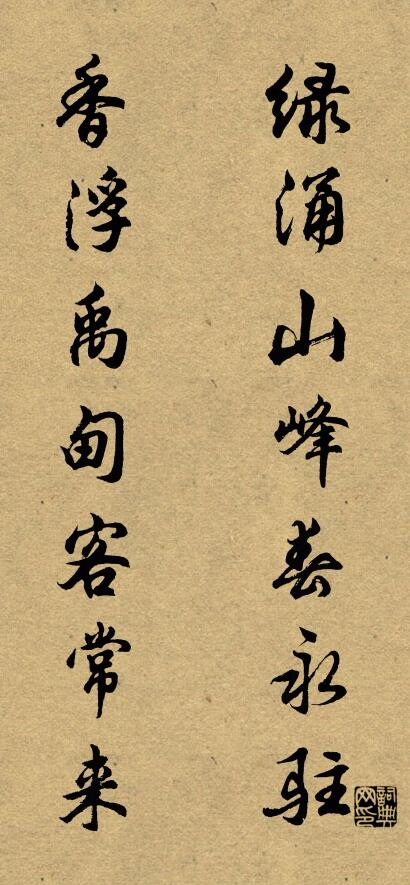 绿涌山峰春永驻
香浮禹甸客常来
词典网印